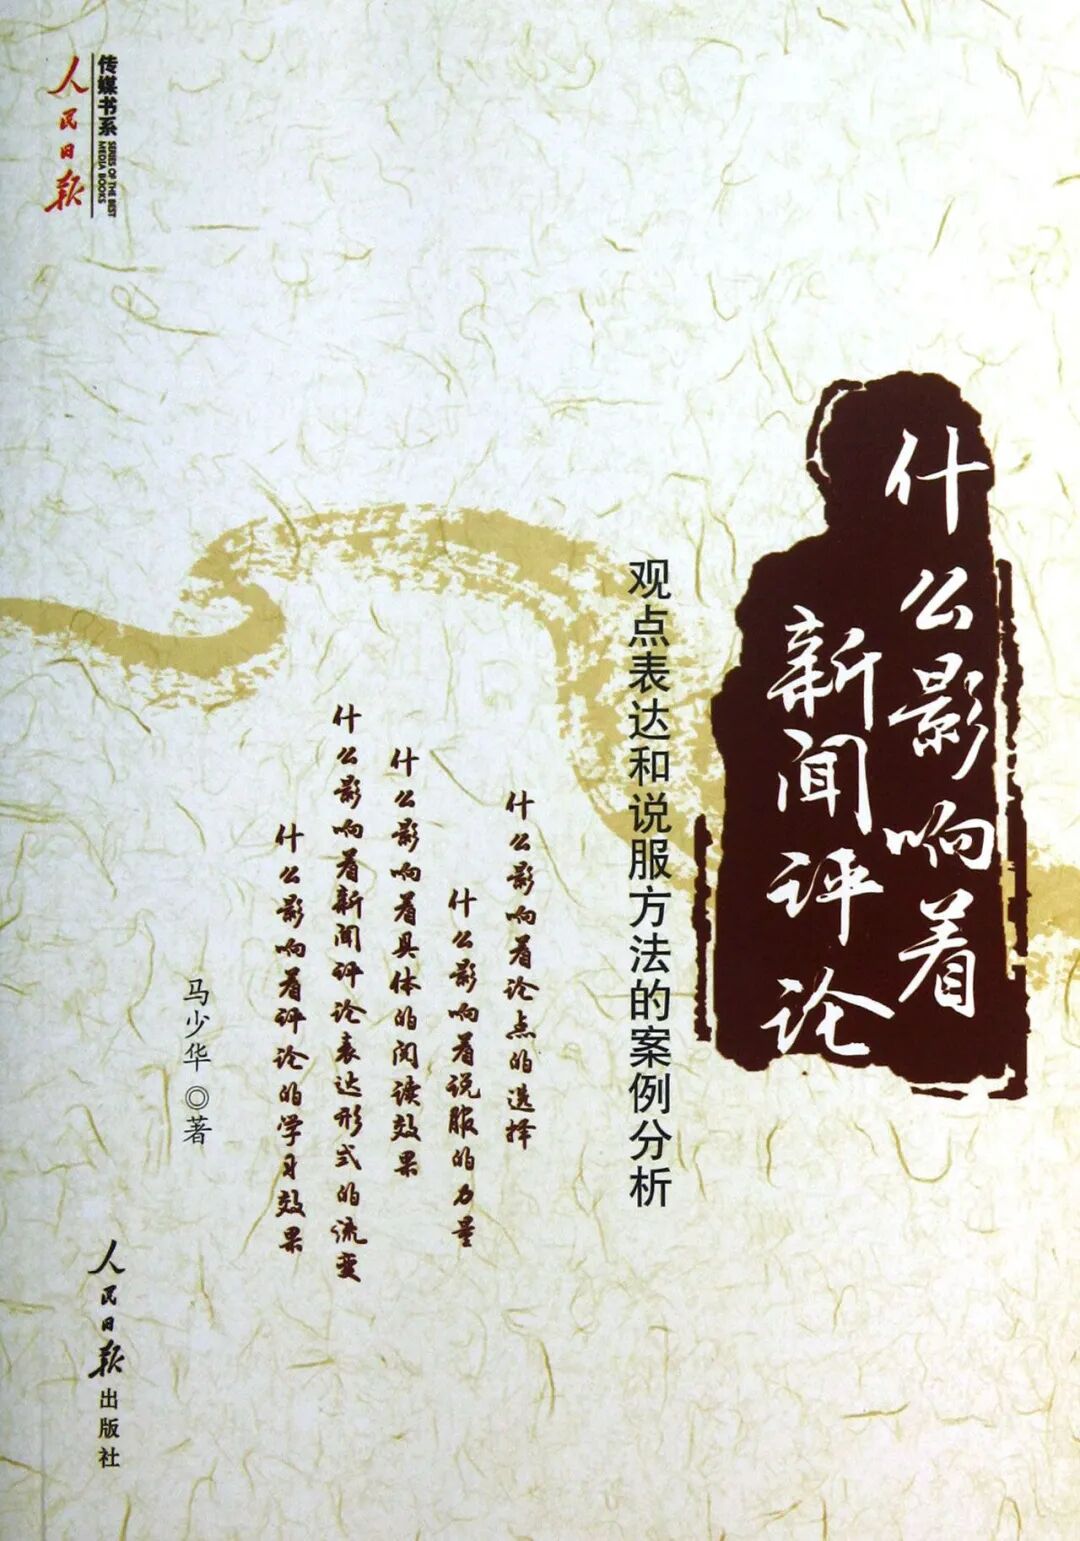 人民日报
传媒书系
SERIES OF THE BEST
MEDIA BOOKS
什么影响着
新闻评论
观点表达和说服方法的案例分析
什么影响着论点的选择
什么影响着说服的力量
什么影响着具体的阅读效果
什么影响着新闻评论表达形式的流变
什么影响着评论的学习效果
马少华◎著
人民日报出版社